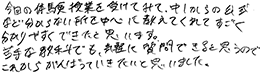 今回の体験授業を受けてみて、中1からの公式
など分からない所を中心に教えてくれてすごく
分かりやすくできたと思います。
苦手な数学でも、気軽に質問できると思うので
これからがんばっていきたいと思いました。